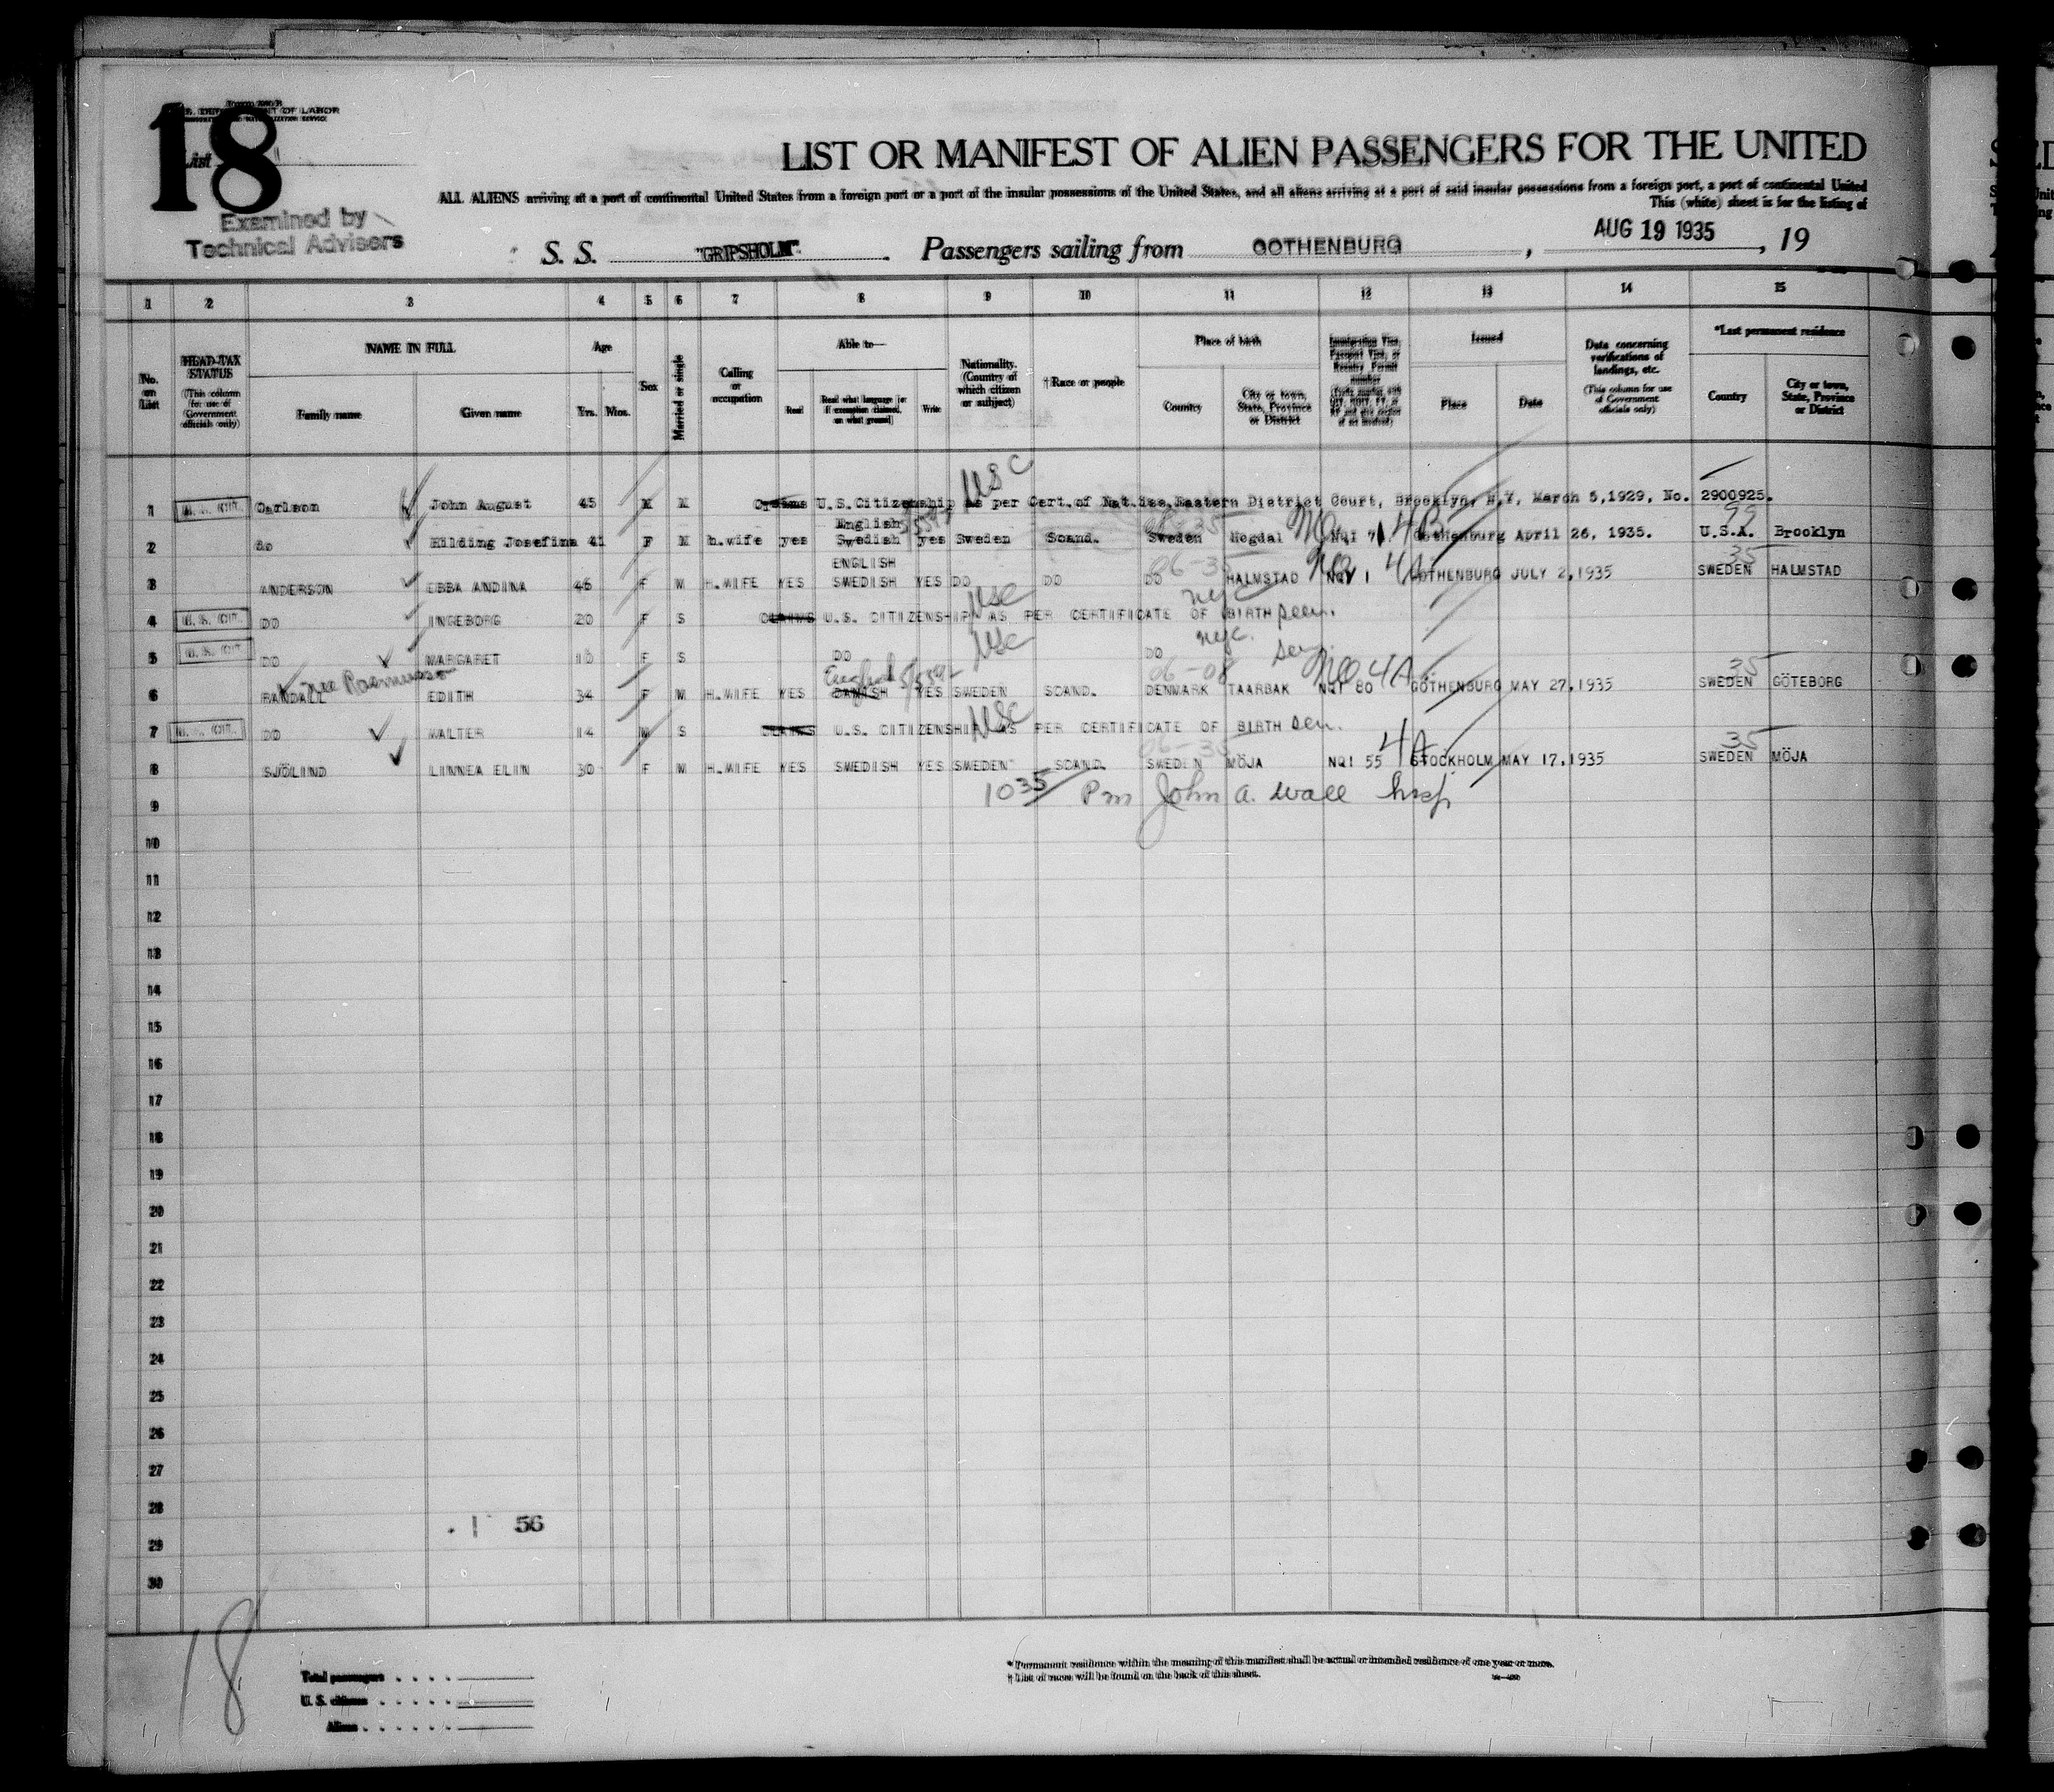 18
U.S. DEPARTMENT OF LABOR
List
Examined by
Technical Advisers
LIST OR MANIFEST OF ALIEN PASSENGERS FOR THE UNITED
ALL ALIENS arriving at a port of continental United States from a foreign port or a port of the insular possessions of the United States, and all aliens arriving at a port of said insular possessions from a foreign port, a port of continental United
This (white) sheet is for the listing of
S. S. "GRIPSHOLM". Passengers sailing from GOTHENBURG, AUG 19 1935, 19
1 2 3 4 5 6 7 8 9 10 11 12 13 14 15
No. on List
HEAD-TAX STATUS (This column for use of Government officials only)
NAME IN FULL
Family name
Given name
Age
Yrs. Mos.
Sex
Married or single
Calling or occupation
Able to—
Read
Read what language [or if exemption claimed, on what ground]
Write
Nationality. (Country of which citizen or subject)
†Race or people
Place of birth
Country
City or town, State, Province or District
Issued
Place
Date
Data concerning verifications of landings, etc. (This column for use of Government officials only)
*Last permanent residence
Country
City or town, State, Province or District
USC
1 U.S. CIT. Carlson John August 45 M M U.S.Citizenship as per Cert.of Nat. Eastern District Court, Brooklyn, N.Y, March 5,1929, No. 2900925.
English 99
2 do Hilding Josefina 41 F M h.wife yes Swedish yes Sweden Scand. Sweden Hogdal NQI 71 4B Gothenburg April 26, 1935. U.S.A. Brooklyn
ENGLISH 06-35 35
3 ANDERSON EBBA ANDINA 46 F M H.WIFE YES SWEDISH YES DO DO DO HALMSTAD NQV 1 4A GOTHENBURG JULY 2,1935 SWEDEN HALMSTAD
USC nyc
4 U.S. CIT. DO INGEBORG 20 F S CLAIMS U.S. CITIZENSHIP AS PER CERTIFICATE OF BIRTH seen.
USC nyc.
5 U.S. CIT. DO MARGARET F S DO DO
nee Rasmussen English 06-08 35
6 RANDALL EDITH 34 F M H.WIFE YES DANISH YES SWEDEN SCAND. DENMARK TAARBAK NQI 80 4A GÖTHENBURG MAY 27,1935 SWEDEN GÖTEBORG
USC
7 U.S. CIT. DO WALTER 14 M S CLAIMS U.S. CITIZENSHIP AS PER CERTIFICATE OF BIRTH seen.
06-35 35
8 SJÖLIND LINNEA ELIN 30 F M H.WIFE YES SWEDISH YES SWEDEN SCAND. SWEDEN MÖJA NQI 55 4A STOCKHOLM MAY 17,1935 SWEDEN MÖJA
1035 Pm John A. Wall Insp
9
10
11
12
13
14
15
16
17
18
19
20
21
22
23
24
25
26
27
28
56
29
30
18
Total passengers . . . .
U. S. citizens . . . . .
Aliens . . . . . .
* Permanent residence within the meaning of this manifest shall be actual or intended residence of one year or more.
† List of races will be found on the back of this sheet.